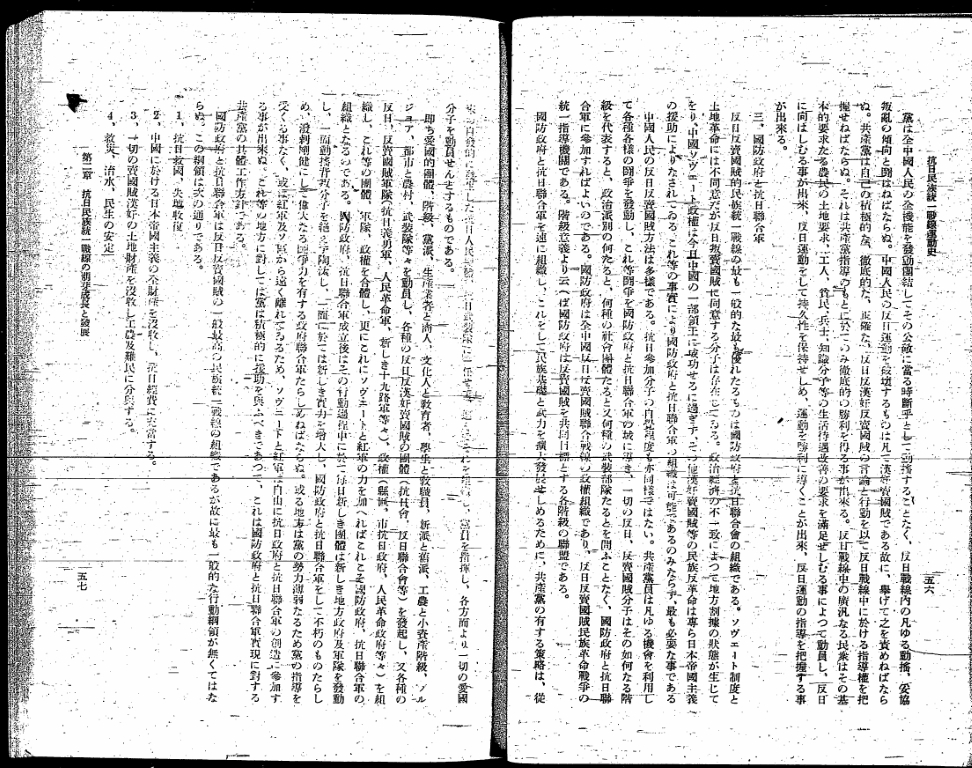 抗日民族統一戰線運動史
五六
黨は全中國人民の全機能を發動團結してその公敵に當る時斷乎として動搖することなく、反日戰線內の凡ゆる動搖、妥協
叛亂の傾向と鬪はねばならぬ。中國人民の反日運動を破壞するものは凡て漢奸賣國賊である故に、擧げて之を責めねばなら
ぬ。共產黨は自己の積極的な、徹底的な、正確な、反日反漢奸反賣國賊の言論と行動を以て反日戰線中に於ける指導權を把
握せねばならぬ。それは共產黨指導のもとに於てのみ徹底的の勝利を得る事が出來る。反日戰線中の廣汎なる民衆はその基
本的要求たる農民の土地要求、工人、貧民、兵士、知識分子等の生活待遇改善の要求を滿足せしむる事によつて動員し、反日
に向はしむる事が出來、反日運動をして持久性を保持せしめ、運動を勝利に導くことが出來、反日運動の指導を把握する事
が出來る。
三、國防政府と抗日聯合軍
反日反賣國賊的民族統一戰線の最も一般的な最も優れたるものは國防政府と抗日聯合會の組織である。ソヴェート制度と
土地革命には不同意だが反日反賣國賊に同意する分子は存在してゐる。政治經濟の不一致によつて地方割據の狀態が生じて
をり、中國ソヴェート政權は今日中國の一部領土に成功せるに過ぎず、その他漢奸賣國賊等の民族反革命は專ら日本帝國主義
の援助によりなされてゐる、これ等の事實により國防政府と抗日聯合軍の組織は可能であるのみならず、最も必要な事である
中國人民の反日反賣國賊方法は多樣である。抗日參加分子の自覺程度も亦同樣ではない。共產黨員は凡ゆる機會を利用し
て各種各樣の鬪爭を發動し、これ等鬪爭を國防政府と抗日聯合軍の域に導き、一切の反日、反賣國賊分子はその如何なる階
級を代表すると、政治派別の何たると、何種の社會團體たると又何種の武裝部隊たるとを問ふことなく、國防政府と抗日聯
合軍に參加すればよいのである。國防政府は全中國反日反賣國賊聯合戰線の政權組織であり、反日反賣國賊民族革命戰爭の
統一指導機關である。階級意義より云へば國防政府は反賣國賊を共同目標とする各階級の聯盟である。
國防政府と抗日聯合軍を速に組織し、これをして民族基礎と武力を擴大發展せしめるために、共產黨の有する策略は、從
分子を動員せんとするものである。
卽ち愛國的團體、階級、黨派、生產業者と商人、文化人と敎育者、學生と敎職員、新派と舊派、工農と小資產階級、ブル
ジョア、都市と農村、武裝隊等々を動員し、各種の反日反漢奸賣國賊の團體(抗日會、反日聯合會等)を發起し、又各種の
反日、反賣國賊軍隊(抗日義勇軍、人民革命軍、新しき十九路軍等々)、政權(縣、市抗日政府、人民革命政府等々)を組
織し、これ等の團體、軍隊、政權を合體し、更にこれにソヴェートと紅軍の力を加へればこれこそ國防政府、抗日聯合軍の
組織となるのである。國防政府、抗日聯合軍成立後はその行動過程中に於て每日新しき團體は新しき地方政府及軍隊を發動
し、一面動搖背叛分子を絕えず淘汰し、一面に於ては新しき實力を增大し、國防政府と抗日聯合軍をして不朽のものたらし
め、潑剌剛健にして偉大なる鬪爭力を有する政府聯合軍たらしめねばならぬ。或る地方は黨の勢力薄弱なるため黨の指導を
受くる事なく、或は紅軍及ソ區から遠く離れてゐるため、ソヴェート下と紅軍は自由に抗日政府と抗日聯合軍の創造に參加す
る事が出來ぬ、これ等の地方に對しては黨は積極的に援助を與ふべきであつて、これは國防政府と抗日聯合軍實現に對する
共產黨の具體工作方針である。
國防政府と抗日聯合軍は反日反賣國賊の一般最高の民族統一戰線の組織であるが故に最も一般的な行動綱領が無くてはな
らぬ。この綱領は次の通りである。
1、抗日救國、失地收復
2、中國に於ける日本帝國主義の全財產を沒收し、抗日經費に充當する。
3、一切の賣國賊漢奸の土地財產を沒收し工農及難民に分與する。
4、救災、治水、民生の安定
第二章 抗日民族統一戰線の萠芽成長と發展
五七